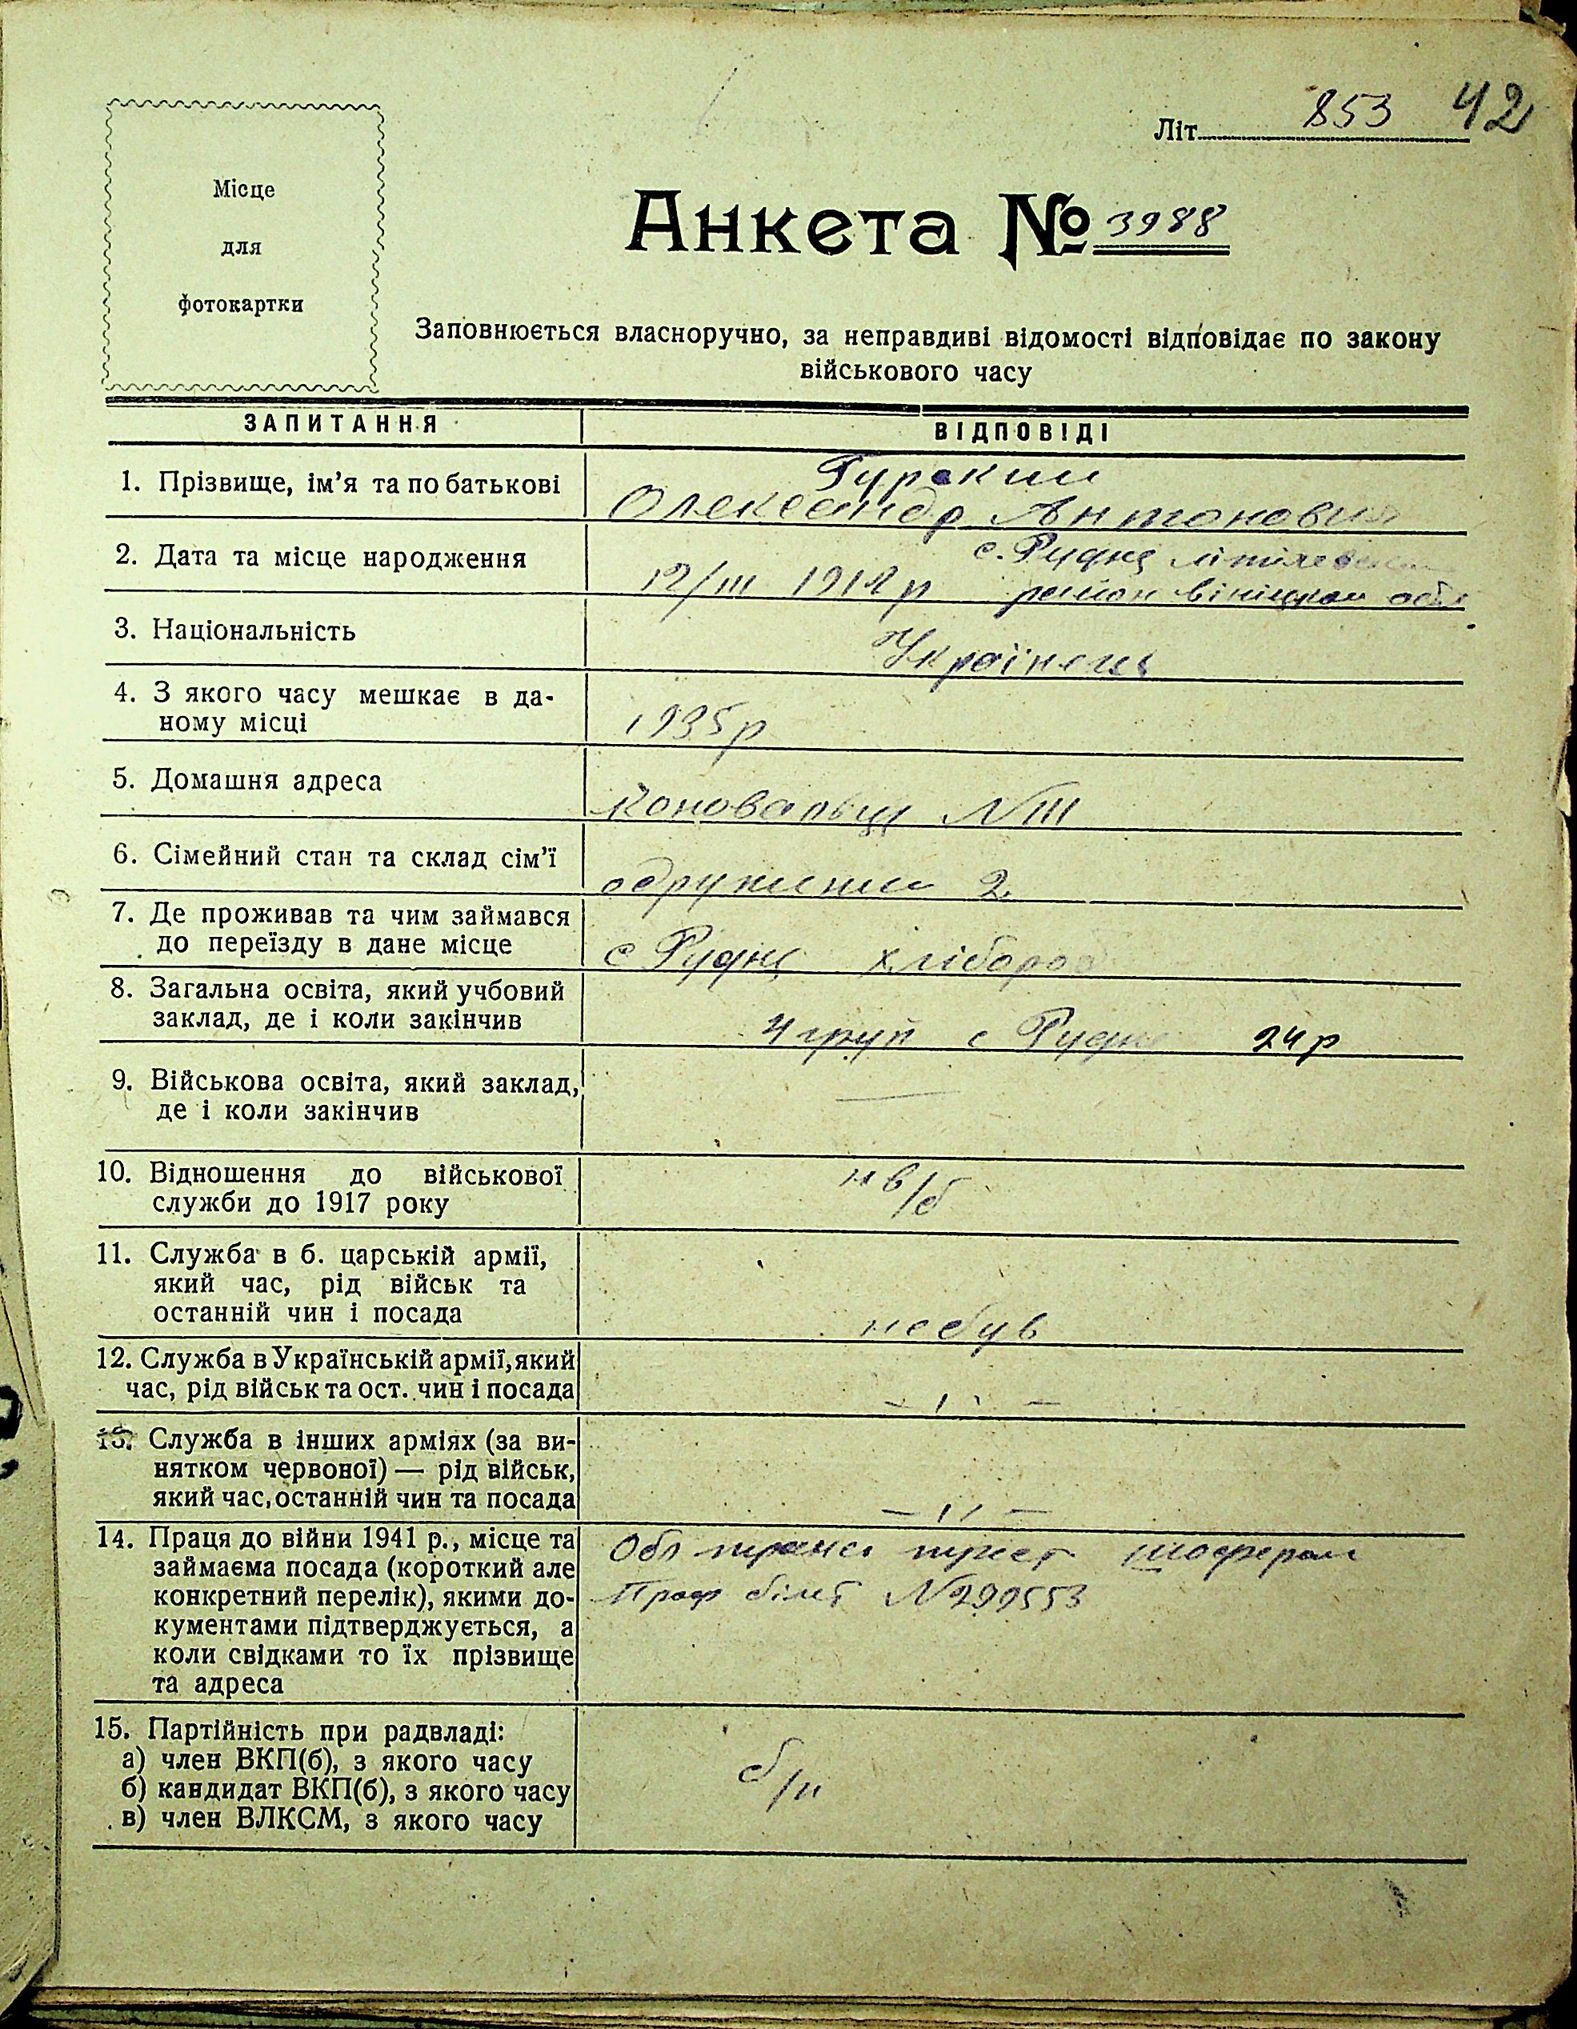 Літ. 853 42
Місце
для
фотокартки
Анкета № 3988
Заповнюється власноручно, за неправдиві відомості відповідає по закону
військового часу
ЗАПИТАННЯ
ВІДПОВІДІ
1. Прізвище, ім'я та по батькові
Олександр Антонович
2. Дата та місце народження
с. Рудня
12/III 1912 р район обл
3. Національність
Українець
4. З якого часу мешкає в да-
ному місці
1935 р
5. Домашня адреса
Коновальця № III
6. Сімейний стан та склад сім'ї
2.
7. Де проживав та чим займався
до переїзду в дане місце
с Рудня хлібороб
8. Загальна освіта, який учбовий
заклад, де і коли закінчив
4 груп с Рудня 24 р
9. Військова освіта, який заклад,
де і коли закінчив
—
10. Відношення до військової
служби до 1917 року
н в/б
11. Служба в б. царській армії,
який час, рід військ та
останній чин і посада
небув
12. Служба в Українській армії, який
час, рід військ та ост. чин і посада
— ,, —
13. Служба в інших арміях (за ви-
нятком червоної) — рід військ,
який час, останній чин та посада
— ,, —
14. Праця до війни 1941 р., місце та
займаєма посада (короткий але
конкретний перелік), якими до-
кументами підтверджується, а
коли свідками то їх прізвище
та адреса
Обл транс пункт шофером
Проф білет № 299553
15. Партійність при радвладі:
а) член ВКП(б), з якого часу
б) кандидат ВКП(б), з якого часу
в) член ВЛКСМ, з якого часу
б/п